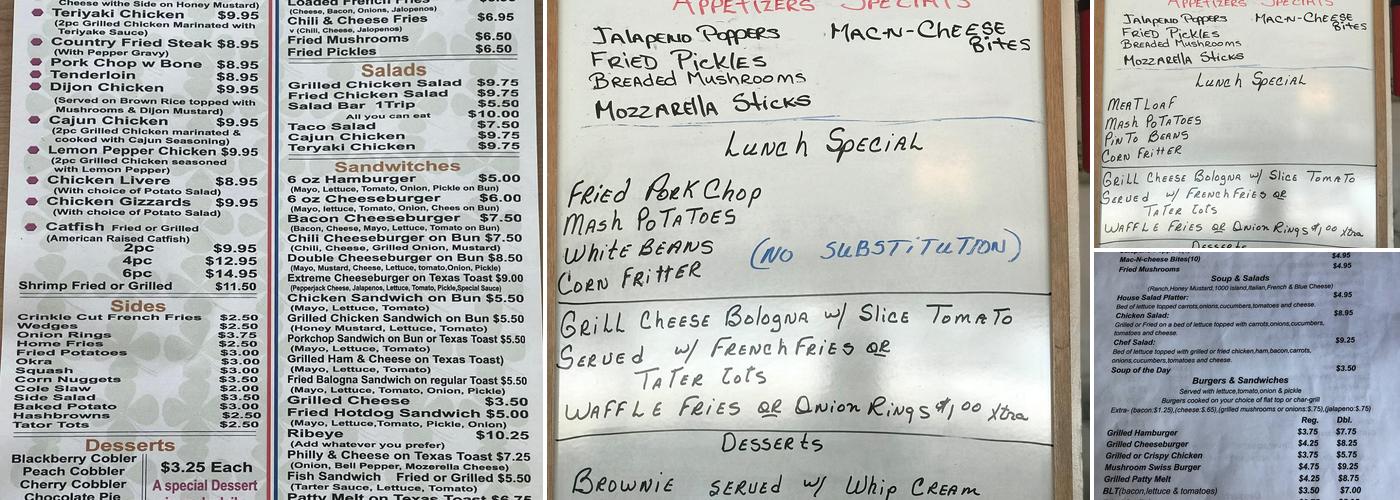 Cheese withe Side on Honey Mustard)
Teriyaki Chicken $9.95
(2pc Grilled Chicken Marinated with
Teriyake Sauce)
Country Fried Steak $8.95
(With Pepper Gravy)
Pork Chop w Bone $8.95
Tenderloin $8.95
Dijon Chicken $9.95
(Served on Brown Rice topped with
Mushrooms & Dijon Mustard)
Cajun Chicken $9.95
(2pc Grilled Chicken marinated &
cooked with Cajun Seasoning)
Lemon Pepper Chicken $9.95
(2pc Grilled Chicken seasoned
with Lemon Pepper)
Chicken Livere $8.95
(With choice of Potato Salad)
Chicken Gizzards $9.95
(With choice of Potato Salad)
Catfish Fried or Grilled
(American Raised Catfish)
2pc $9.95
4pc $12.95
6pc $14.95
Shrimp Fried or Grilled $11.50
Sides
Crinkle Cut French Fries $2.50
Wedges $2.50
Onion Rings $3.75
Home Fries $2.50
Fried Potatoes $3.00
Okra $3.00
Squash $3.00
Corn Nuggets $3.50
Cole Slaw $2.00
Side Salad $3.50
Baked Potato $3.00
Hashbrowns $2.50
Tator Tots $2.50
Desserts
Blackberry Cobler
Peach Cobbler
Cherry Cobbler
Chocolate Pie
$3.25 Each
A special Dessert
Loaded French Fries
(Cheese, Bacon, Onions, Jalopenos)
Chili & Cheese Fries $6.95
v (Chili, Cheese, Jalopenos)
Fried Mushrooms $6.50
Fried Pickles $6.50
Salads
Grilled Chicken Salad $9.75
Fried Chicken Salad $9.75
Salad Bar 1Trip $5.50
All you can eat $10.00
Taco Salad $7.50
Cajun Chicken $9.75
Teryaki Chicken $9.75
Sandwitches
6 oz Hamburger $5.00
(Mayo, Lettuce, Tomato, Onion, Pickle on Bun)
6 oz Cheeseburger $6.00
(Mayo, lettuce, Tomato, Onion, Chees on Bun)
Bacon Cheeseburger $7.50
(Bacon, Cheese, Mayo, Lettuce, Tomato on Bun)
Chili Cheeseburger on Bun $7.50
(Chili, Cheese, Grilled Onion, Mustard)
Double Cheeseburger on Bun $8.50
(Mayo, Mustard, Cheese, Lettuce, tomato,Onion, Pickle)
Extreme Cheeseburger on Texas Toast $9.00
(Pepperjack Cheese, Jalapenos, Lettuce, Tomato, Pickle,Special Sauce)
Chicken Sandwich on Bun $5.50
(Mayo, Lettuce, Tomato)
Grilled Chicken Sandwich on Bun $5.50
(Honey Mustard, Lettuce, Tomato)
Porkchop Sandwich on Bun or Texas Toast $5.50
(Mayo, Lettuce, Tomato)
Grilled Ham & Cheese on Texas Toast)
(Mayo, Lettuce, Tomato)
Fried Balogna Sandwich on regular Toast $5.50
(Mayo, Lettuce,Tomato, Onion, Pickle)
Grilled Cheese $3.50
Fried Hotdog Sandwich $5.00
(Mayo, Lettuce,Tomato,Pickle, Onion)
Ribeye $10.25
(Add whatever you prefer)
Philly & Cheese on Texas Toast $7.25
(Onion, Bell Pepper, Mozerella Cheese)
Fish Sandwich Fried or Grilled $5.50
(Tarter Sauce, Lettuce, Tomato)
Patty Melt on Texas Toast $6.75
APPETIZERS SPECIALS
JALAPENO POPPERS MAC-N-CHEESE BITES
FRIED PICKLES
BREADED MUSHROOMS
MOZZARELLA STICKS
LUNCH SPECIAL
FRIED PORK CHOP
MASH POTATOES
WHITE BEANS (NO SUBSTITUTION)
CORN FRITTER
GRILL CHEESE BOLOGNA w/ SLICE TOMATO
SERVED w/ FRENCH FRIES OR
TATER TOTS
WAFFLE FRIES OR ONION RINGS $1.00 Xtra
DESSERTS
BROWNIE SERVED w/ WHIP CREAM
JALAPENO POPPERS MAC-N-CHEESE BITES
FRIED PICKLES
BREADED MUSHROOMS
MOZZARELLA STICKS
LUNCH SPECIAL
MEATLOAF
MASH POTATOES
PINTO BEANS
CORN FRITTER
GRILL CHEESE BOLOGNA w/ SLICE TOMATO
SERVED w/ FRENCH FRIES OR
TATER TOTS
WAFFLE FRIES OR ONION RINGS $1.00 Xtra
DESSERTS
Mac-N-cheese Bites(10) $4.95
Fried Mushrooms $4.95
Soup & Salads
(Ranch,Honey Mustard,1000 Island,Italian,French & Blue Cheese)
House Salad Platter: $4.95
Bed of lettuce topped carrots,onions,cucumbers,tomatoes and cheese.
Chicken Salad: $8.95
Grilled or Fried on a bed of lettuce topped with carrots,onions,cucumbers,
tomatoes and cheese.
Chef Salad: $9.25
Bed of lettuce topped with grilled or fried chicken,ham,bacon,carrots,
onions,cucumbers,tomatoes and cheese.
Soup of the Day $3.50
Burgers & Sandwiches
Served with lettuce,tomato,onion & pickle
Burgers cooked on your choice of flat top or char-grill
Extra- (bacon:$1.25),(cheese:$.65),(grilled mushrooms or onions:$.75),(jalapeno:$.75)
Reg. Dbl.
Grilled Hamburger $3.75 $7.75
Grilled Cheeseburger $4.25 $8.25
Grilled or Crispy Chicken $3.75 $5.75
Mushroom Swiss Burger $4.75 $9.25
Grilled Patty Melt $4.25 $8.75
BLT(bacon,lettuce & tomatoes) $3.50 $7.00